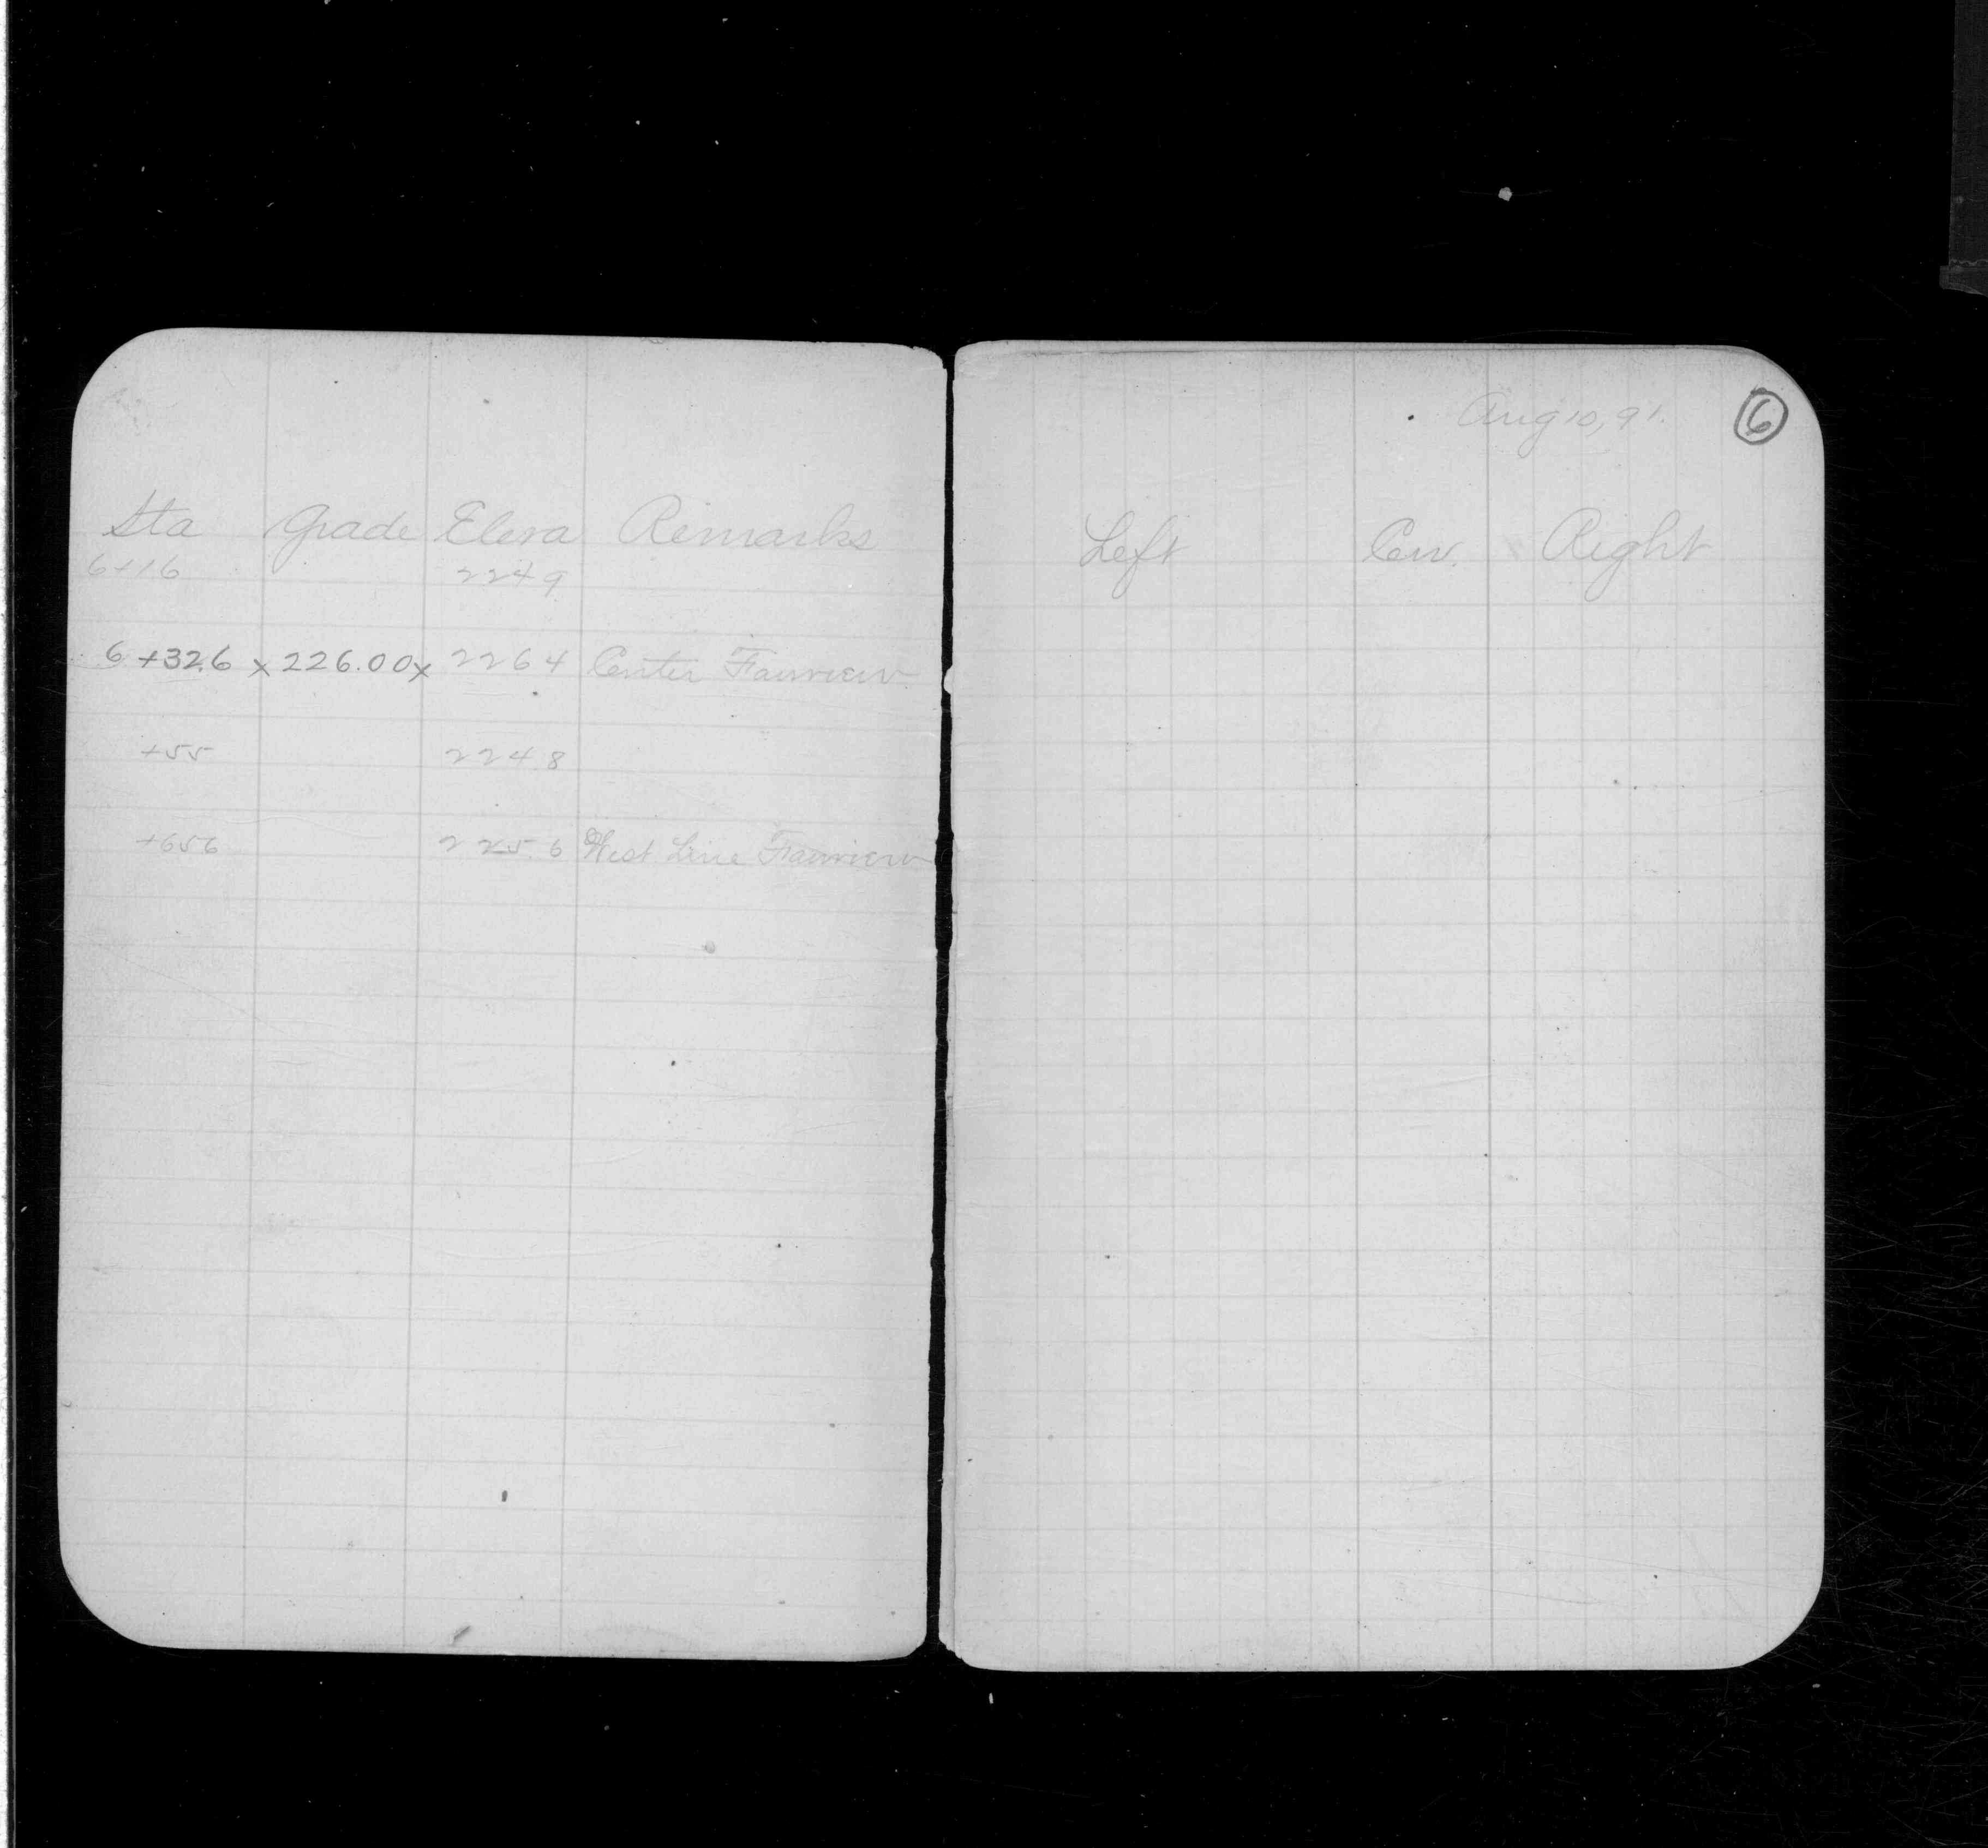 Sta Grade Eleva Remarks
6+16 224 9
6 +32.6 x 226.00 x 226 4 Center Fairview
+55 224 8
+65 6 225 6 West Line Fairview
Aug 10, 91. 6
Left Cen. Right